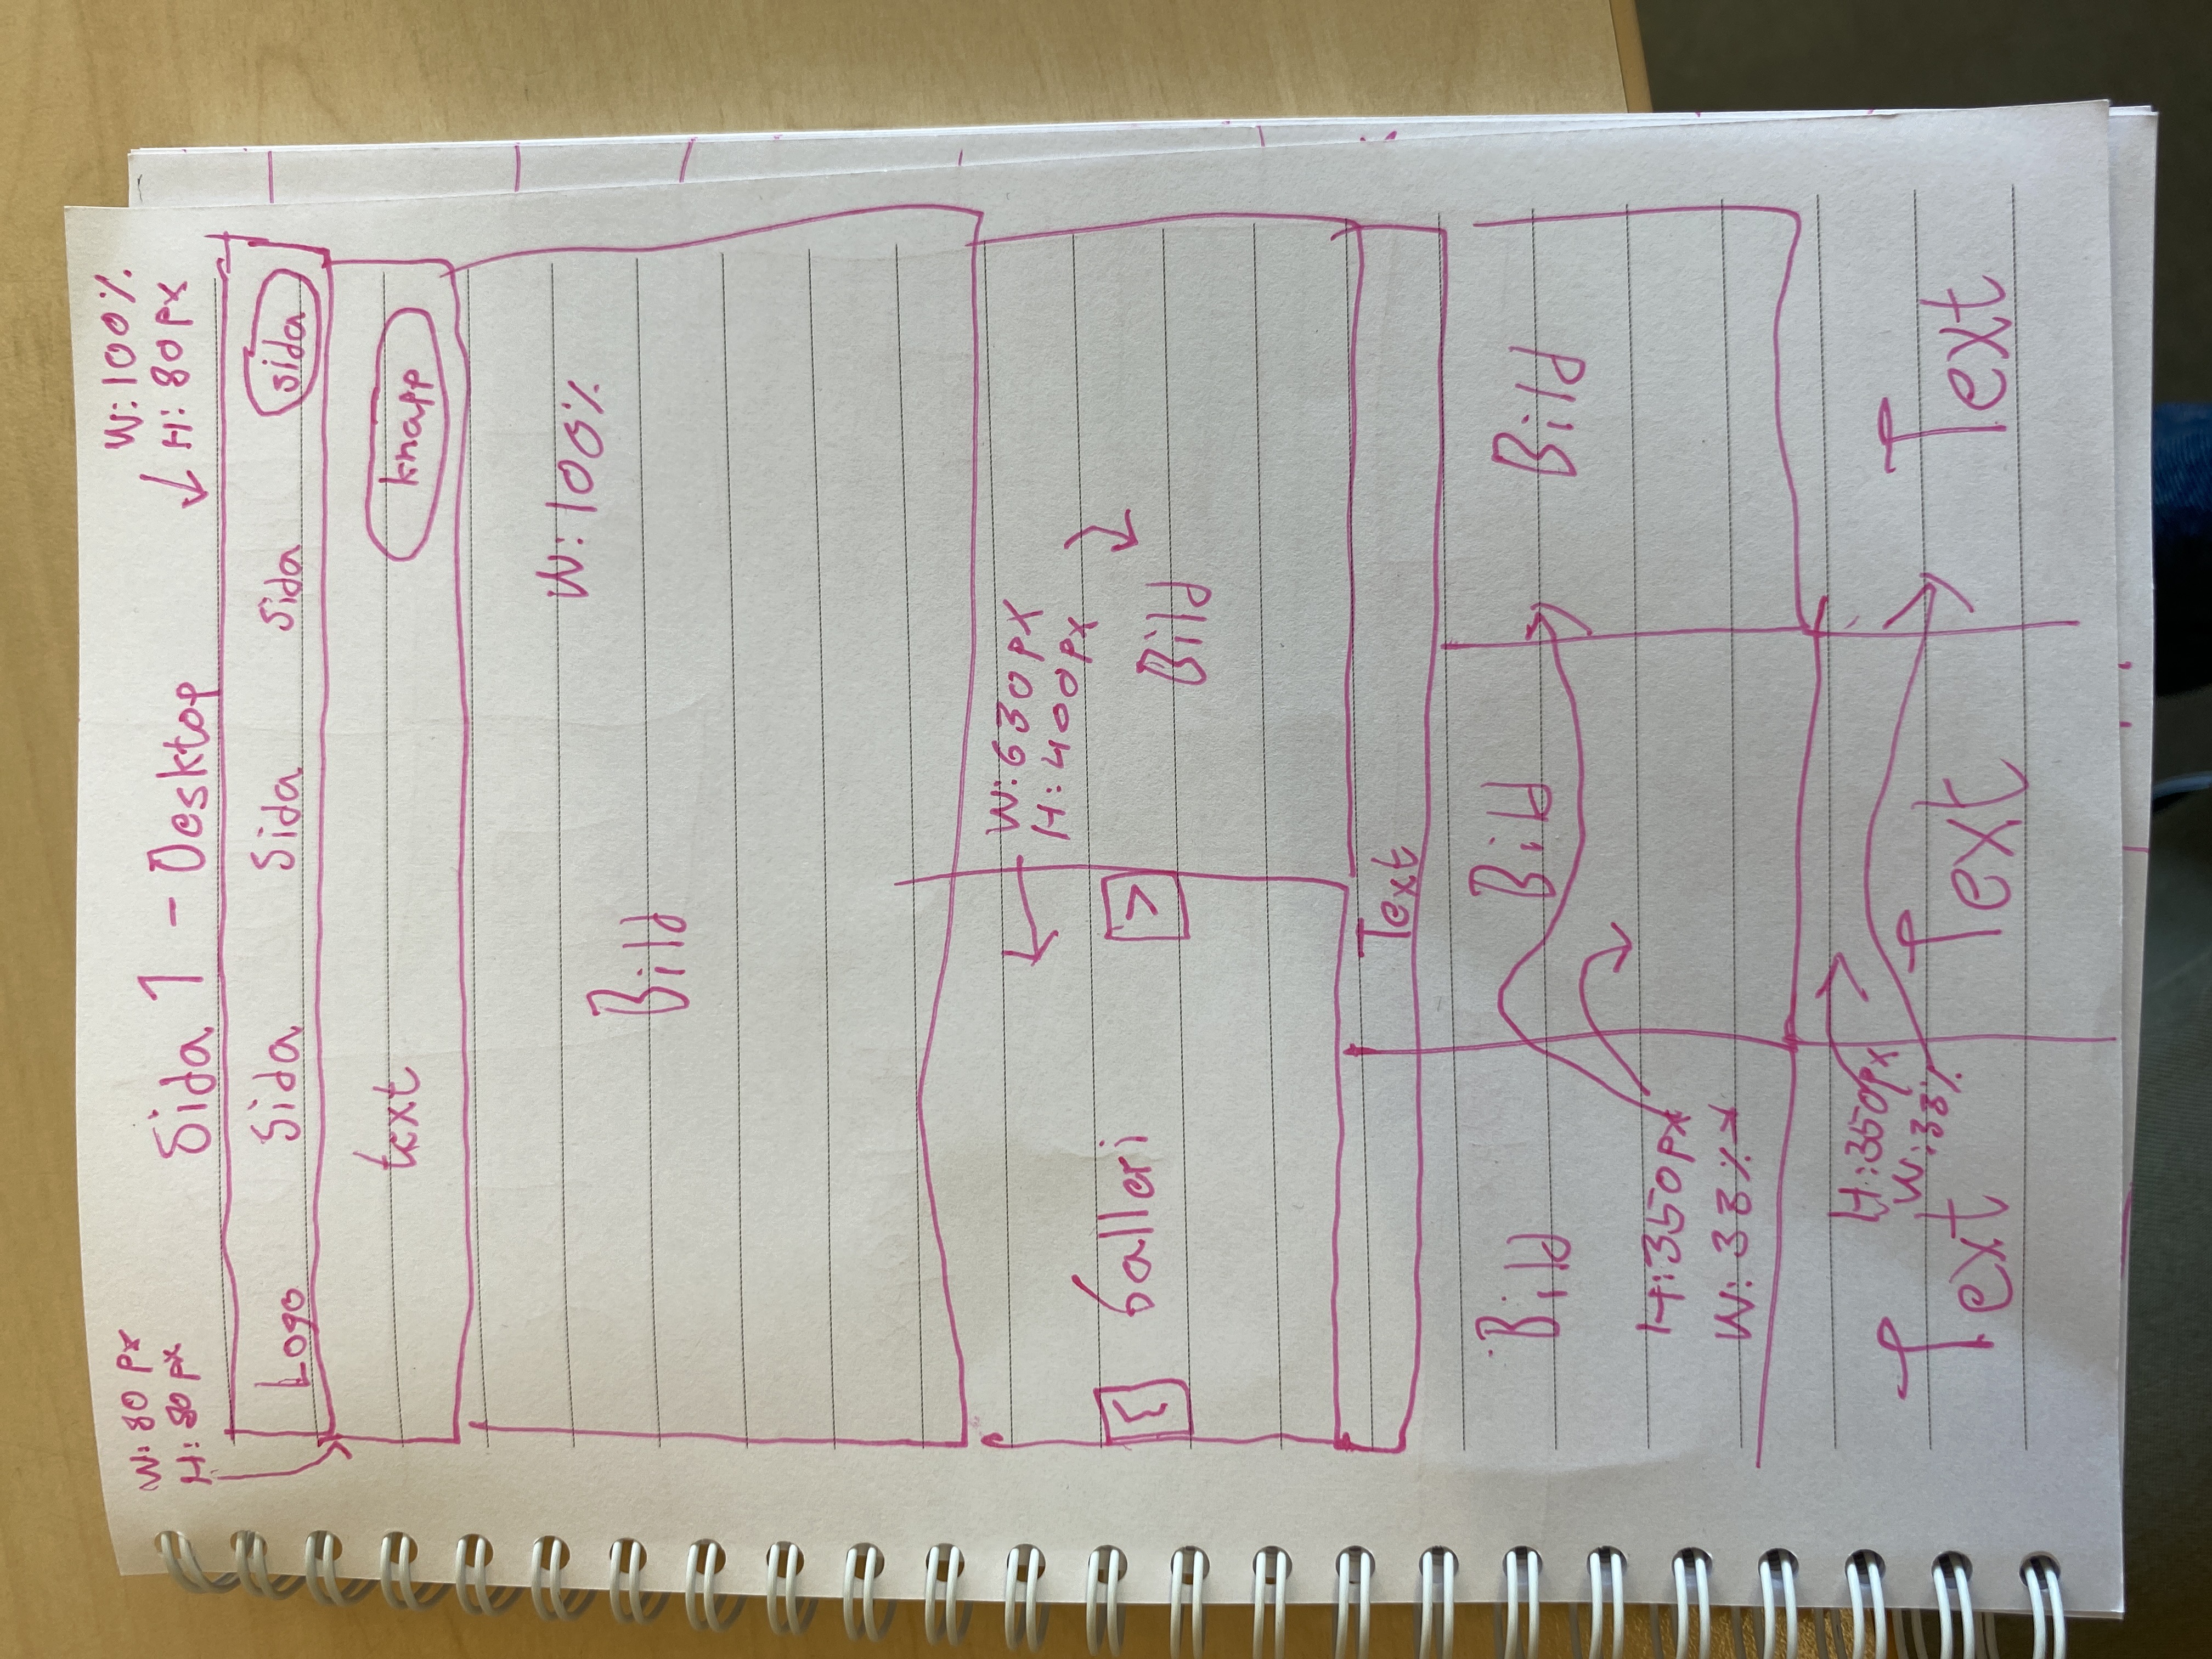 W: 80 px
H: 80 px
Sida 1 - Desktop
W: 100%
H: 80px
Logo Sida Sida Sida sida
text knapp
W: 100%
Bild
W: 630px
H: 400px
< Galleri >
Bild
Text
Bild Bild Bild
H: 350px
W: 33%
H: 350px
W: 33%
Text Text Text